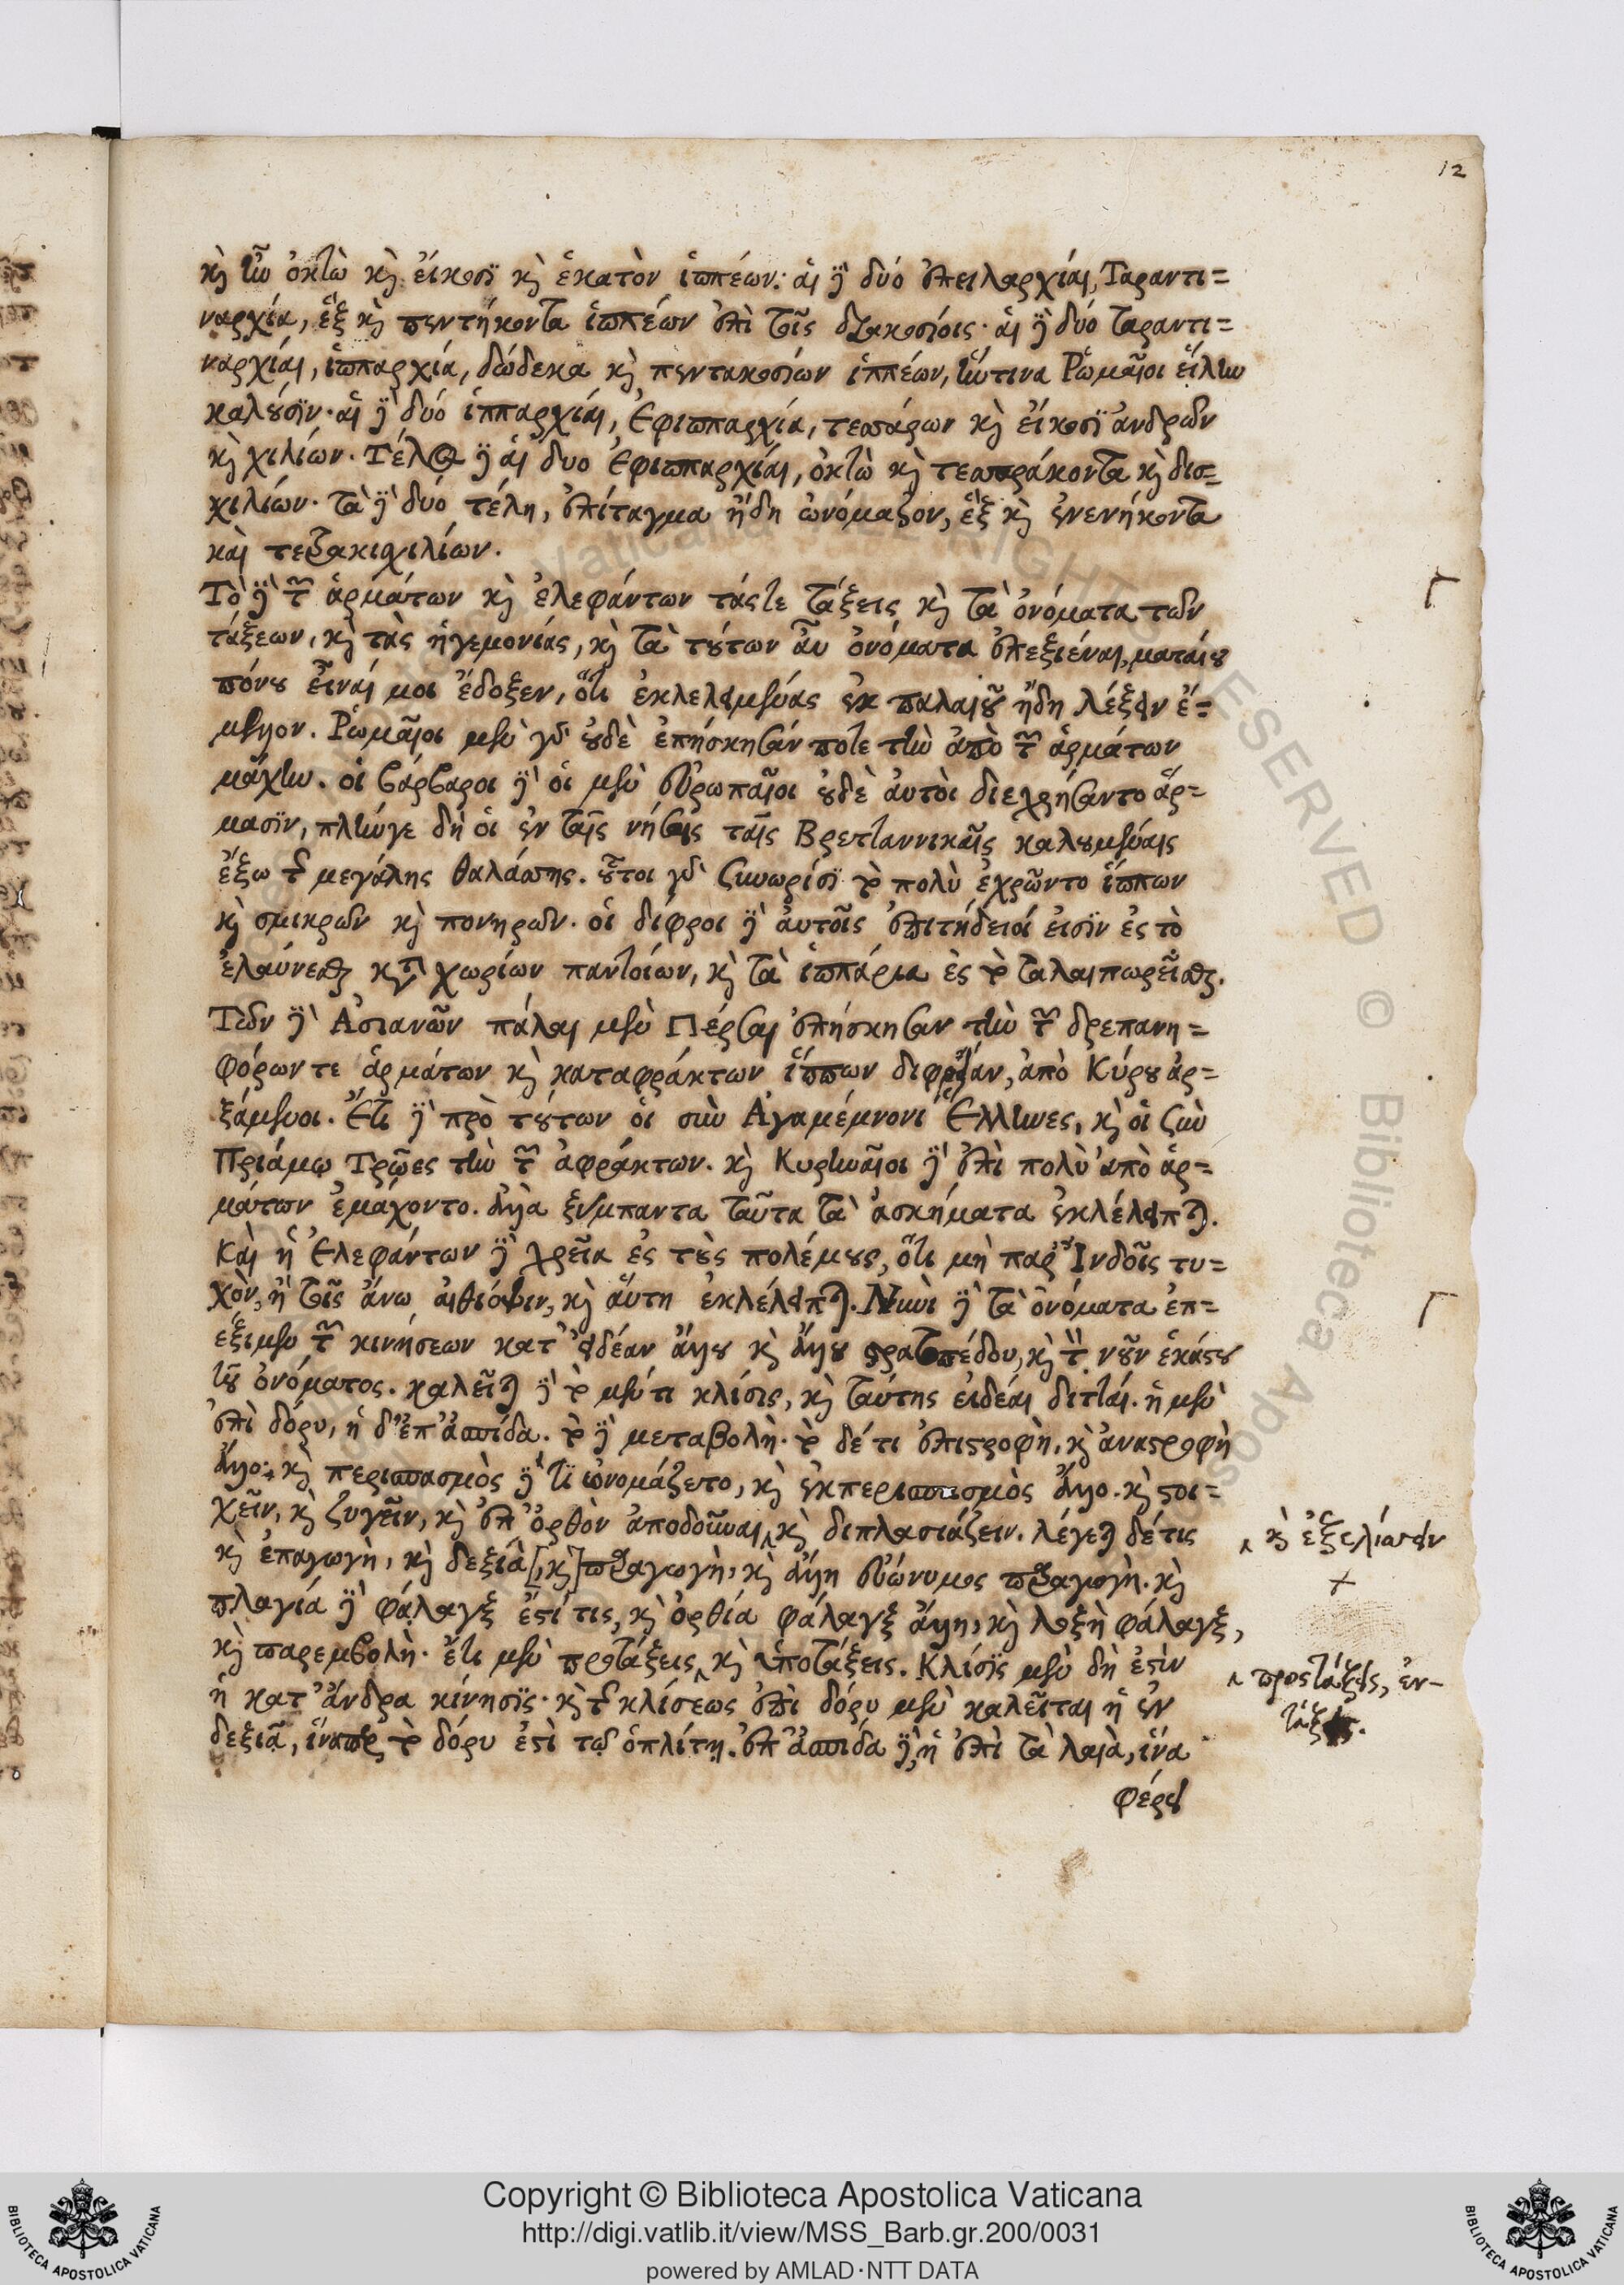 12
καὶ ἦν ὀκτὼ καὶ εἴκοσι καὶ ἑκατὸν ἱππέων· αἱ δὲ δύο ἐπειλαρχίαι, Ταραντι=
ναρχία, ἓξ καὶ πεντήκοντα ἱππέων ἐπὶ τοῖς διακοσίοις· αἱ δὲ δύο ταραντι=
ναρχίαι, ἱππαρχία, δώδεκα καὶ πεντακοσίων ἱππέων, ἥντινα Ῥωμαῖοι εἴλην
καλοῦσιν· αἱ δὲ δύο ἱππαρχίαι, Ἐφιππαρχία, τεσσάρων καὶ εἴκοσι ἀνδρῶν
καὶ χιλίων. Τέλος δὲ αἱ δυο Ἐφιππαρχίαι, ὀκτὼ καὶ τεσσαράκοντα καὶ δισ=
χιλίων· τὰ δὲ δύο τέλη, ἐπίταγμα ἤδη ὠνόμαζον, ἓξ καὶ ἐνενήκοντα
καὶ τετρακιχιλίων.
Τὸ δὲ τῶν ἁρμάτων καὶ ἐλεφάντων τάς τε τάξεις καὶ τὰ ὀνόματα τῶν
τάξεων, καὶ τὰς ἡγεμονίας, καὶ τὰ τούτων αὖ ὀνόματα ἐπεξιέναι, ματαίου
πόνου εἶναί μοι ἔδοξεν, ὅτι ἐκλελειμμένας ἐκ παλαιοῦ ἤδη λέξειν ἔ=
μελλον. Ῥωμαῖοι μὲν γὰρ οὐδὲ ἐπήσκησάν ποτε τὴν ἀπὸ τῶν ἁρμάτων
μάχην. οἱ βάρβαροι δὲ οἱ μὲν Εὐρωπαῖοι οὐδὲ αὐτοὶ διεχρήσαντο ἅρ=
μασιν, πλήν γε δὴ οἱ ἐν ταῖς νήσοις ταῖς Βρεττανικαῖς καλουμέναις
ἔξω τῆς μεγάλης θαλάσσης. οὗτοι γὰρ συνωρίσι τὸ πολὺ ἐχρῶντο ἵππων
καὶ σμικρῶν καὶ πονηρῶν. οἱ δίφροι δὲ αὐτοῖς ἐπιτήδειοί εἰσιν ἐς τὸ
ἐλαύνεσθαι κατὰ χωρίων παντοίων, καὶ τὰ ἱππάρια ἐς τὸ ταλαιπωρεῖσθαι.
Τῶν δὲ Ἀσιανῶν πάλαι μὲν Πέρσαι ἐπήσκησαν τὴν τῶν δρεπανη=
φόρων τε ἁρμάτων καὶ καταφράκτων ἵππων διφρείαν, ἀπὸ Κύρου ἀρ=
ξάμενοι. Ἔτι δὲ πρὸ τούτων οἱ σὺν Ἀγαμέμνονι Ἕλληνες, καὶ οἱ ξὺν
Πριάμῳ Τρῶες τὴν τῶν ἀφράκτων. καὶ Κυρηναῖοι δὲ ἐπὶ πολὺ ἀπὸ ἁρ=
μάτων ἐμάχοντο. ἀλλὰ ξύμπαντα ταῦτα τὰ ἀσκήματα ἐκλέλειπται.
Καὶ ἡ Ἐλεφάντων δὲ χρεῖα ἐς τοὺς πολέμους, ὅτι μὴ παρ' Ἰνδοῖς τυ=
χὸν, ἢ τοῖς ἄνω αἰθίοψιν, καὶ αὕτη ἐκλέλειπται. Νυνὶ δὲ τὰ ὀνόματα ἐπ=
έξιμεν τῶν κινήσεων κατ' εἰδέαν ἄλλου καὶ ἄλλου στρατοπέδου, καὶ τὸν νοῦν ἑκάστου
τοῦ ὀνόματος. καλεῖται δὲ τὸ μέν τι κλίσις, καὶ ταύτης εἰδέαι διτταί. ἡ μὲν
ἐπὶ δόρυ, ἡ δ' ἐπ' ἀσπίδα. τὸ δὲ μεταβολή· τὸ δέ τι ἐπιστροφὴ, καὶ ἀναστροφὴ
ἄλλο· καὶ περισπασμὸς δέ τι ὠνομάζετο, καὶ ἐκπερισπασμὸς ἄλλο. καὶ στοι=
χεῖν, καὶ ζυγεῖν, καὶ ἐπ' ὀρθὸν ἀποδοῦναι, ‸ καὶ διπλασιάζειν. λέγεται δέ τις
‸ καὶ ἐξελίσσειν
καὶ ἐπαγωγὴ, καὶ δεξιὰ [, καὶ] παραγωγὴ, καὶ ἄλλη εὐώνυμος παραγωγή. καὶ
+
πλαγία δὲ φάλαγξ ἔστί τις, καὶ ὀρθία φάλαγξ ἄλλη, καὶ λοξὴ φάλαγξ,
καὶ παρεμβολή. ἔτι μὲν προτάξεις ‸ καὶ ὑποτάξεις. Κλίσις μὲν δὴ ἐστὶν
‸ προστάξεις, ἐν-
τάξεις.
ἡ κατ' ἄνδρα κίνησις· καὶ τῆς κλίσεως ἐπὶ δόρυ μὲν καλεῖται ἡ ἐν
δεξιᾷ, ἵναπερ τὸ δόρυ ἐστὶ τῷ ὁπλίτῃ. ἐπ' ἀσπίδα δὲ, ἡ ἐπὶ τὰ λαιὰ, ἵνα
φέρει
Copyright © Biblioteca Apostolica Vaticana
http://digi.vatlib.it/view/MSS_Barb.gr.200/0031
powered by AMLAD·NTT DATA